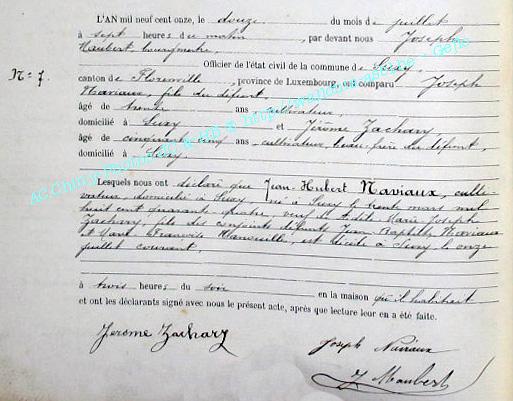 L'AN mil neuf cent onze, le douze du mois de juillet
à sept heures du matin, par devant nous Joseph
Maubert bourgmestre,
Officier de l'état civil de la commune de Suxy,
N° 7. canton de Florenville, province de Luxembourg, est comparu Joseph
Naviaux, fils du défunt,
âgé de trente ans, cultivateur,
domicilié à Suxy et Jérôme Zachary,
âgé de cinquante cinq ans, cultivateur, beau-frère du défunt,
domicilié à Suxy,
Lesquels nous ont déclaré que Jean-Hubert Naviaux, culti-
vateur, domicilié à Suxy, né à Suxy le trente mars mil
huit cent quarante quatre, veuf de Marie Joseph
Zachary, fils des conjoints défunts Jean Baptiste Naviaux
et Françoise, est décédé à Suxy le onze
juillet courant,
à trois heures du soir en la maison qu'il habitait
et ont les déclarants signé avec nous le présent acte, après que lecture leur en a été faite.
Jerome Zachary
Joseph Naviaux
J Maubert